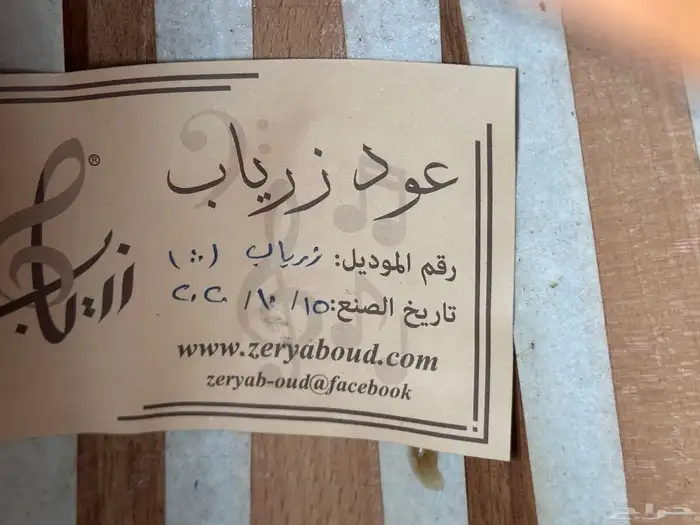 عود زرياب
زرياب ®
رقم الموديل: زرياب
تاريخ الصنع: ١٥/ ١٠/ ٢٠٢٠
www.zeryaboud.com
zeryab-oud@facebook
حراج